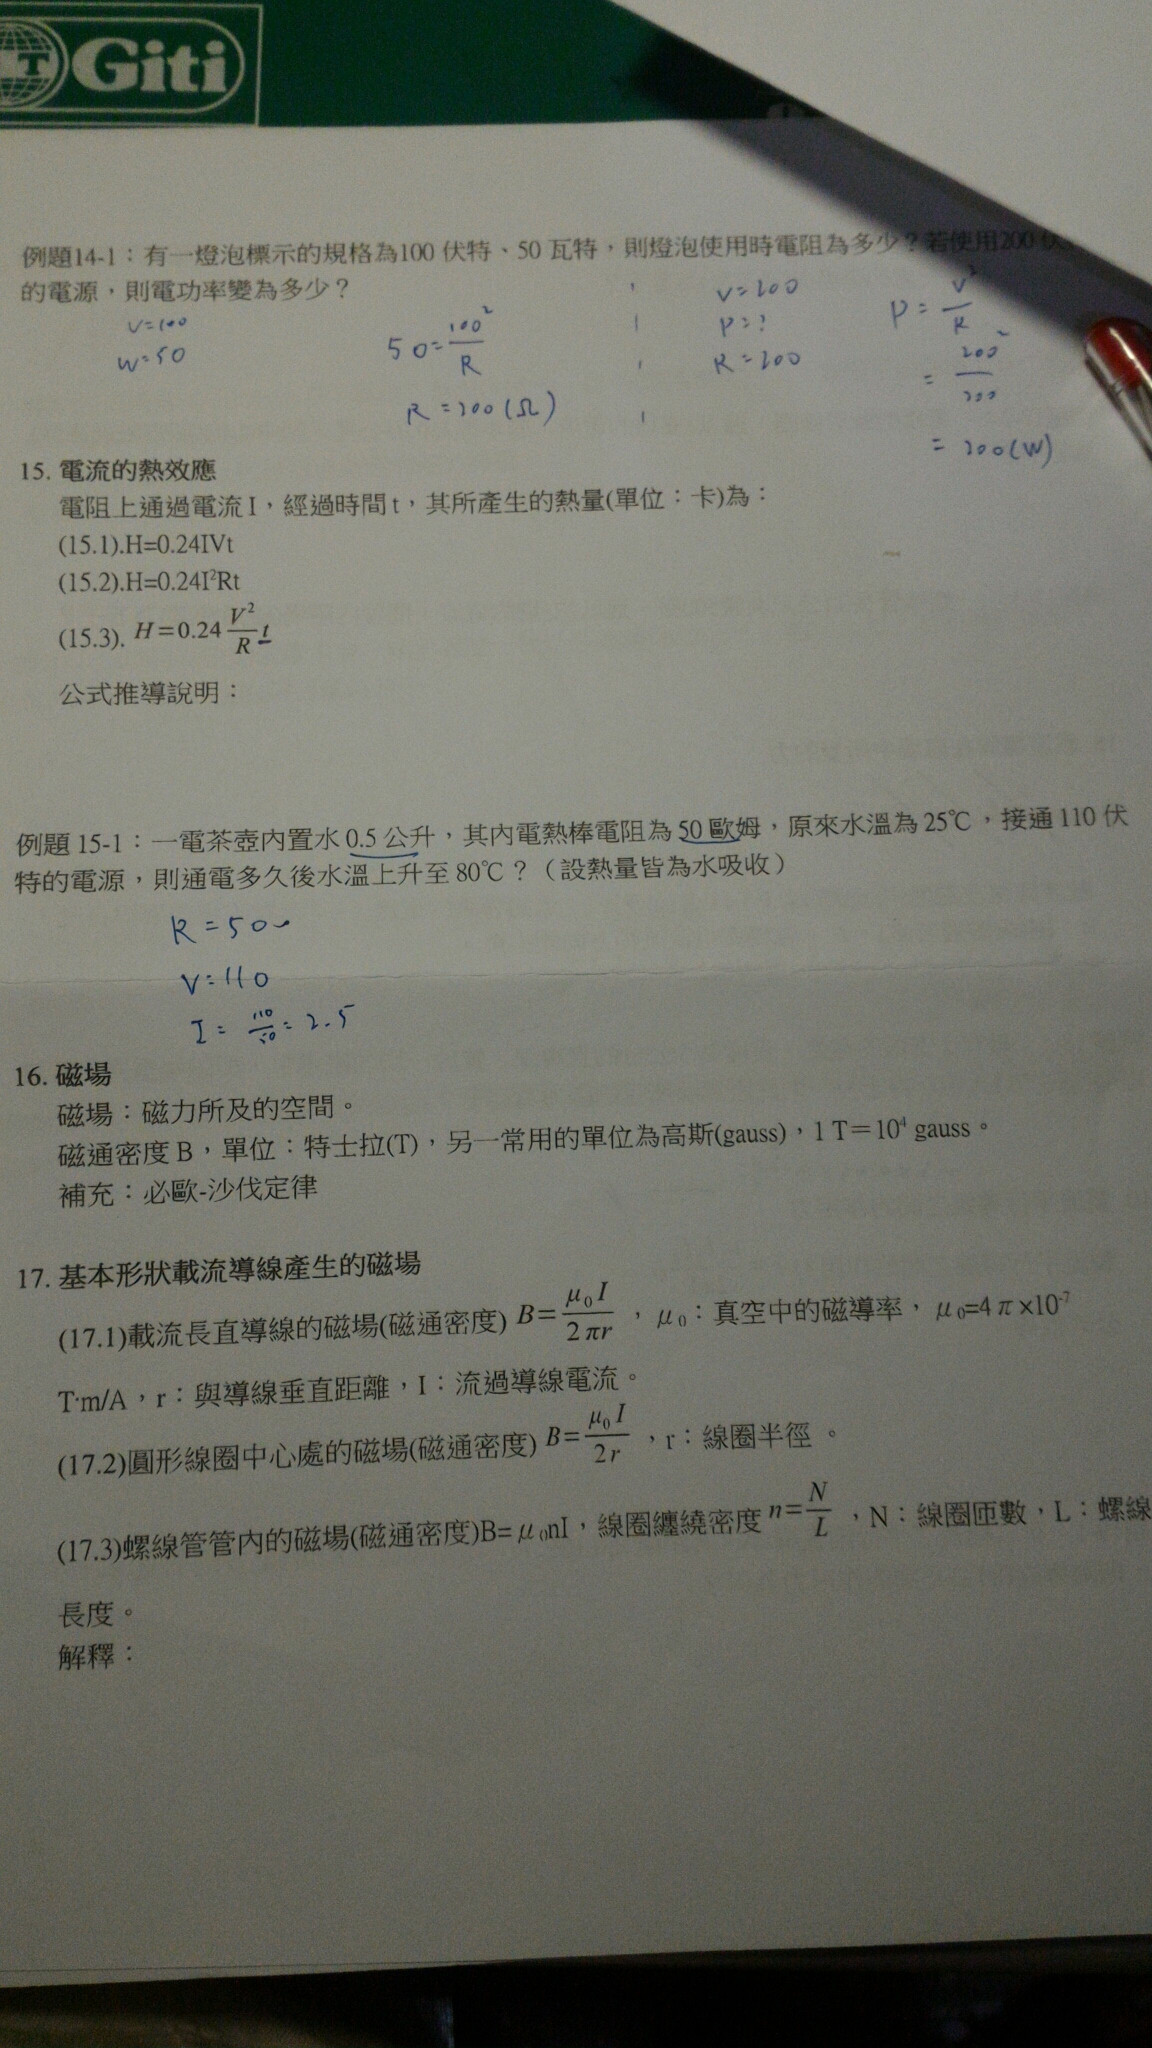 Giti
例題14-1：有一燈泡標示的規格為100 伏特、50 瓦特，則燈泡使用時電阻為多少？若使用200 伏
的電源，則電功率變為多少？
V=100
W=50
50=100²/R
R=200(Ω)
V=200
P=?
R=200
P=V²/R
=200²/200
=200(W)
15. 電流的熱效應
電阻上通過電流 I，經過時間 t，其所產生的熱量(單位：卡)為：
(15.1).H=0.24IVt
(15.2).H=0.24I²Rt
(15.3). H=0.24 V²/R t
公式推導說明：
例題 15-1：一電茶壺內置水 0.5 公升，其內電熱棒電阻為 50 歐姆，原來水溫為 25℃，接通 110 伏
特的電源，則通電多久後水溫上升至 80℃？（設熱量皆為水吸收）
R=50
V=110
I=110/50=2.5
16. 磁場
磁場：磁力所及的空間。
磁通密度 B，單位：特士拉(T)，另一常用的單位為高斯(gauss)，1 T＝10⁴ gauss。
補充：必歐-沙伐定律
17. 基本形狀載流導線產生的磁場
(17.1)載流長直導線的磁場(磁通密度) B=μ₀I/2πr ，μ₀：真空中的磁導率， μ₀=4π×10⁻⁷
T·m/A，r：與導線垂直距離，I：流過導線電流。
(17.2)圓形線圈中心處的磁場(磁通密度) B=μ₀I/2r ，r：線圈半徑 。
(17.3)螺線管管內的磁場(磁通密度)B=μ₀nI，線圈纏繞密度 n=N/L ，N：線圈匝數，L：螺線
長度。
解釋：